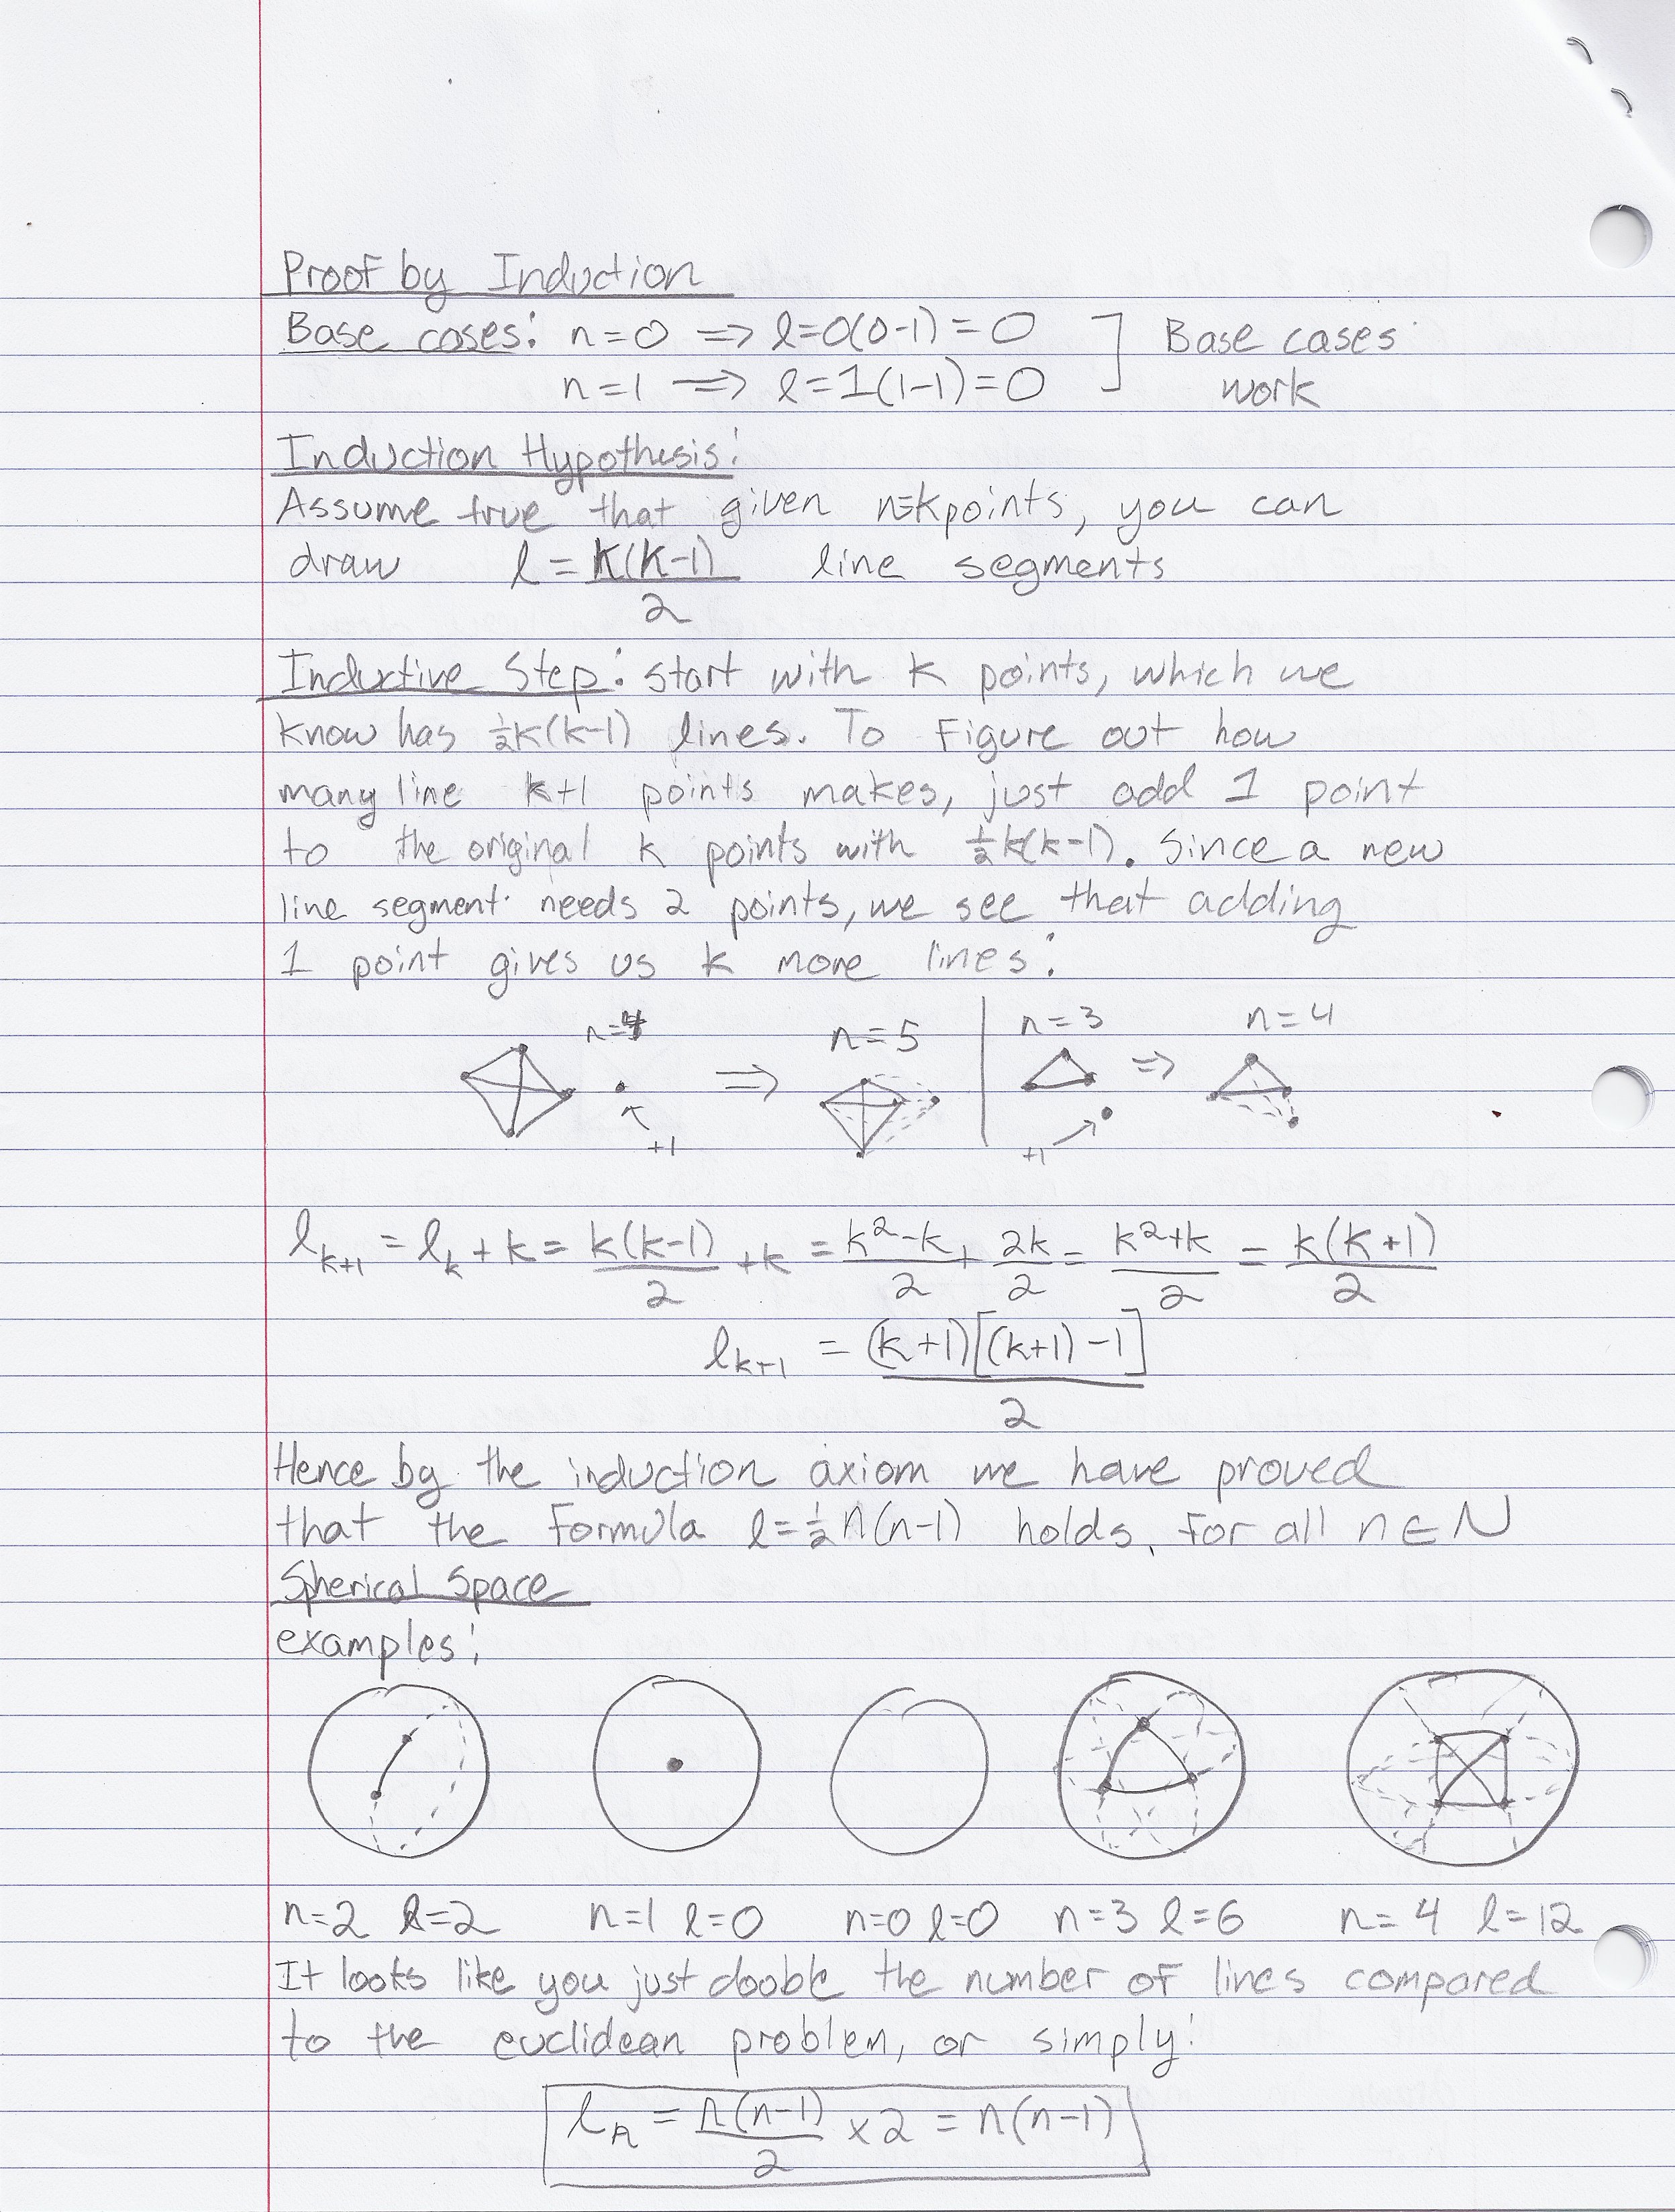 Proof by Induction
Base cases: n=0 => l=0(0-1) = 0 ] Base cases
n=1 => l=1(1-1)=0 work
Induction Hypothesis:
Assume true that given n=k points, you can
draw l = k(k-1)/2 line segments
Inductive Step: start with k points, which we
know has ½k(k-1) lines. To Figure out how
many line k+1 points makes, just add 1 point
to the original k points with ½k(k-1). Since a new
line segment needs 2 points, we see that adding
1 point gives us k more lines:
n=4 n=5 n=3 n=4
=> =>
+1 +1
l_{k+1} = l_k + k = k(k-1)/2 + k = k²-k/2 + 2k/2 = k²+k/2 = k(k+1)/2
l_{k+1} = (k+1)[(k+1)-1]/2
Hence by the induction axiom we have proved
that the formula l=½n(n-1) holds for all n∈N
Spherical Space
examples:
n=2 l=2 n=1 l=0 n=0 l=0 n=3 l=6 n=4 l=12
It looks like you just double the number of lines compared
to the euclidean problem, or simply:
l_n = n(n-1)/2 × 2 = n(n-1)